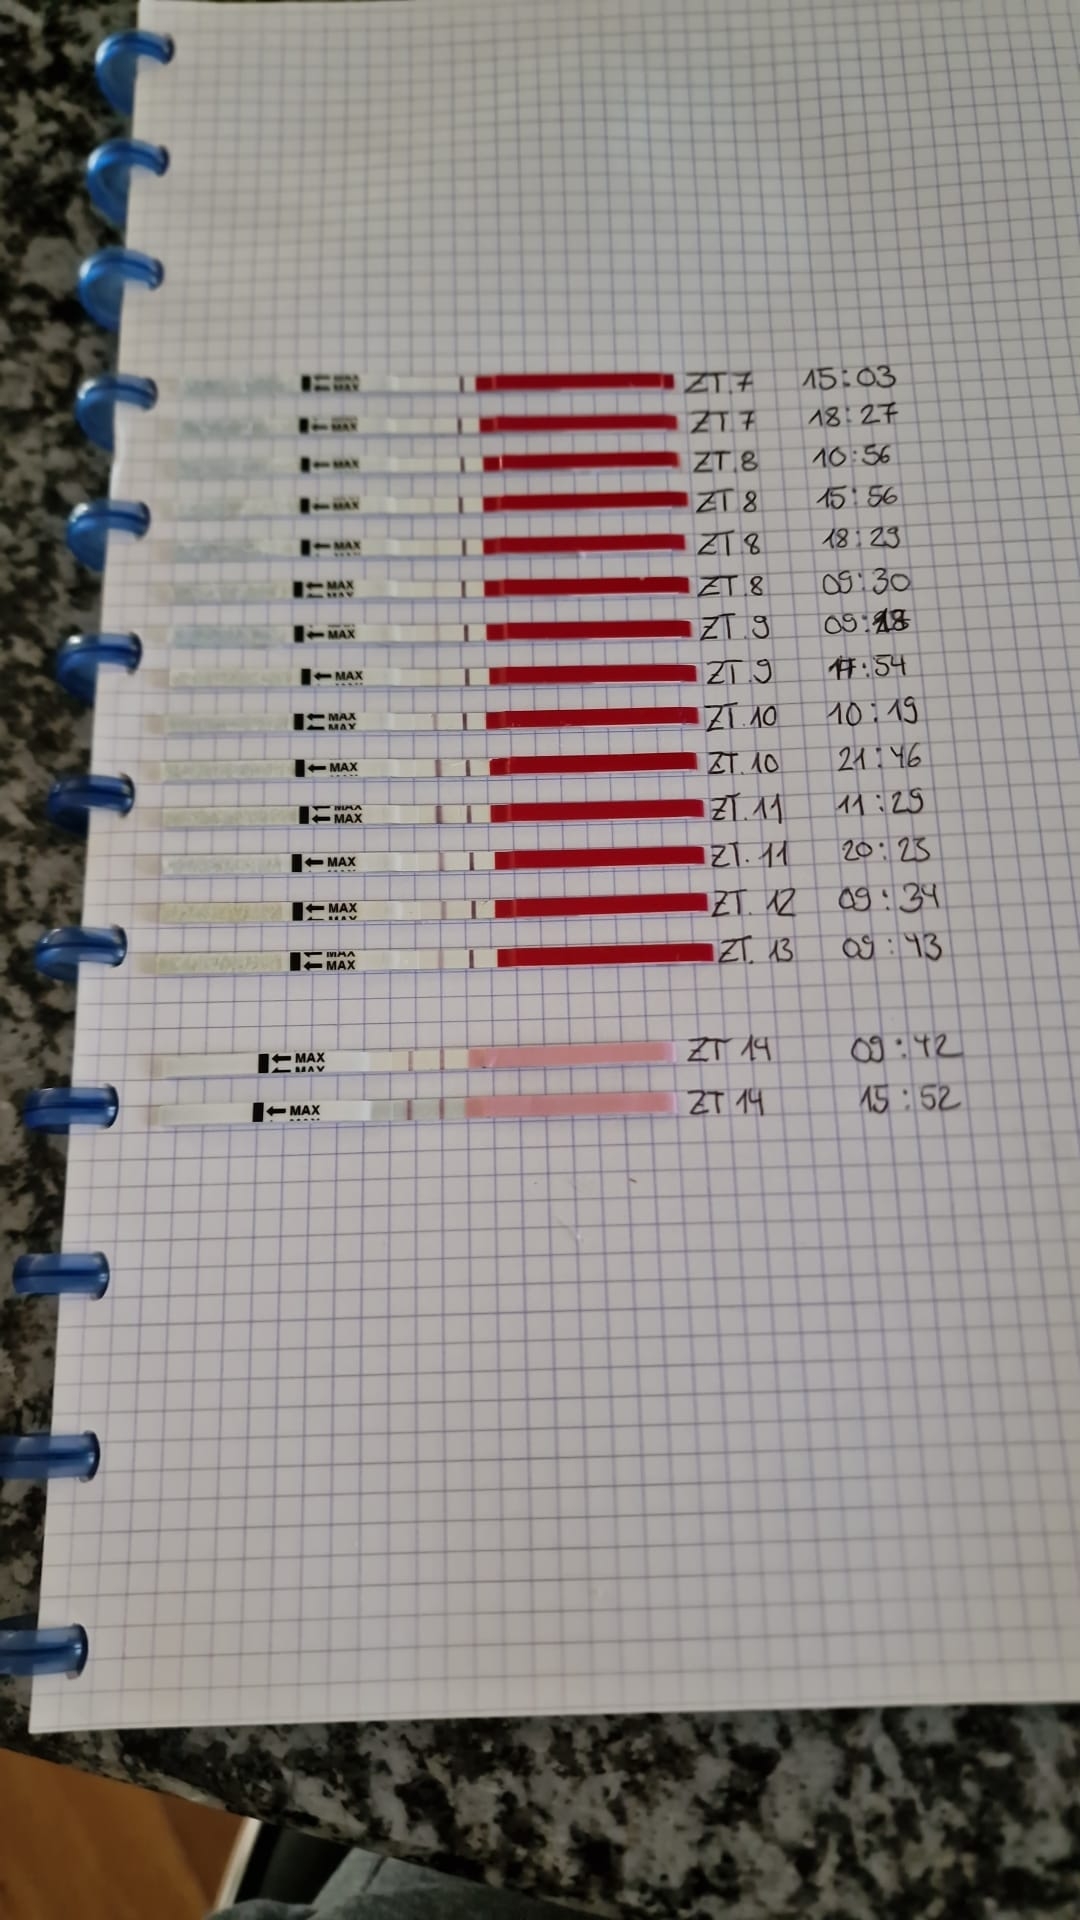 MAX MAX ZT.7 15:03
MAX ZT.7 18:27
MAX ZT.8 10:56
MAX ZT 8 15:56
MAX ZT 8 18:29
MAX MAX ZT.8 09:30
MAX ZT.9 09:
MAX ZT.9 17:54
MAX MAX ZT.10 10:19
MAX ZT.10 21:46
MAX MAX ZT.11 11:29
MAX ZT. 11 20:25
MAX MAX ZT. 12 09:34
MAX MAX ZT. 13 09:43
MAX MAX ZT 14 09:42
MAX ZT 14 15:52